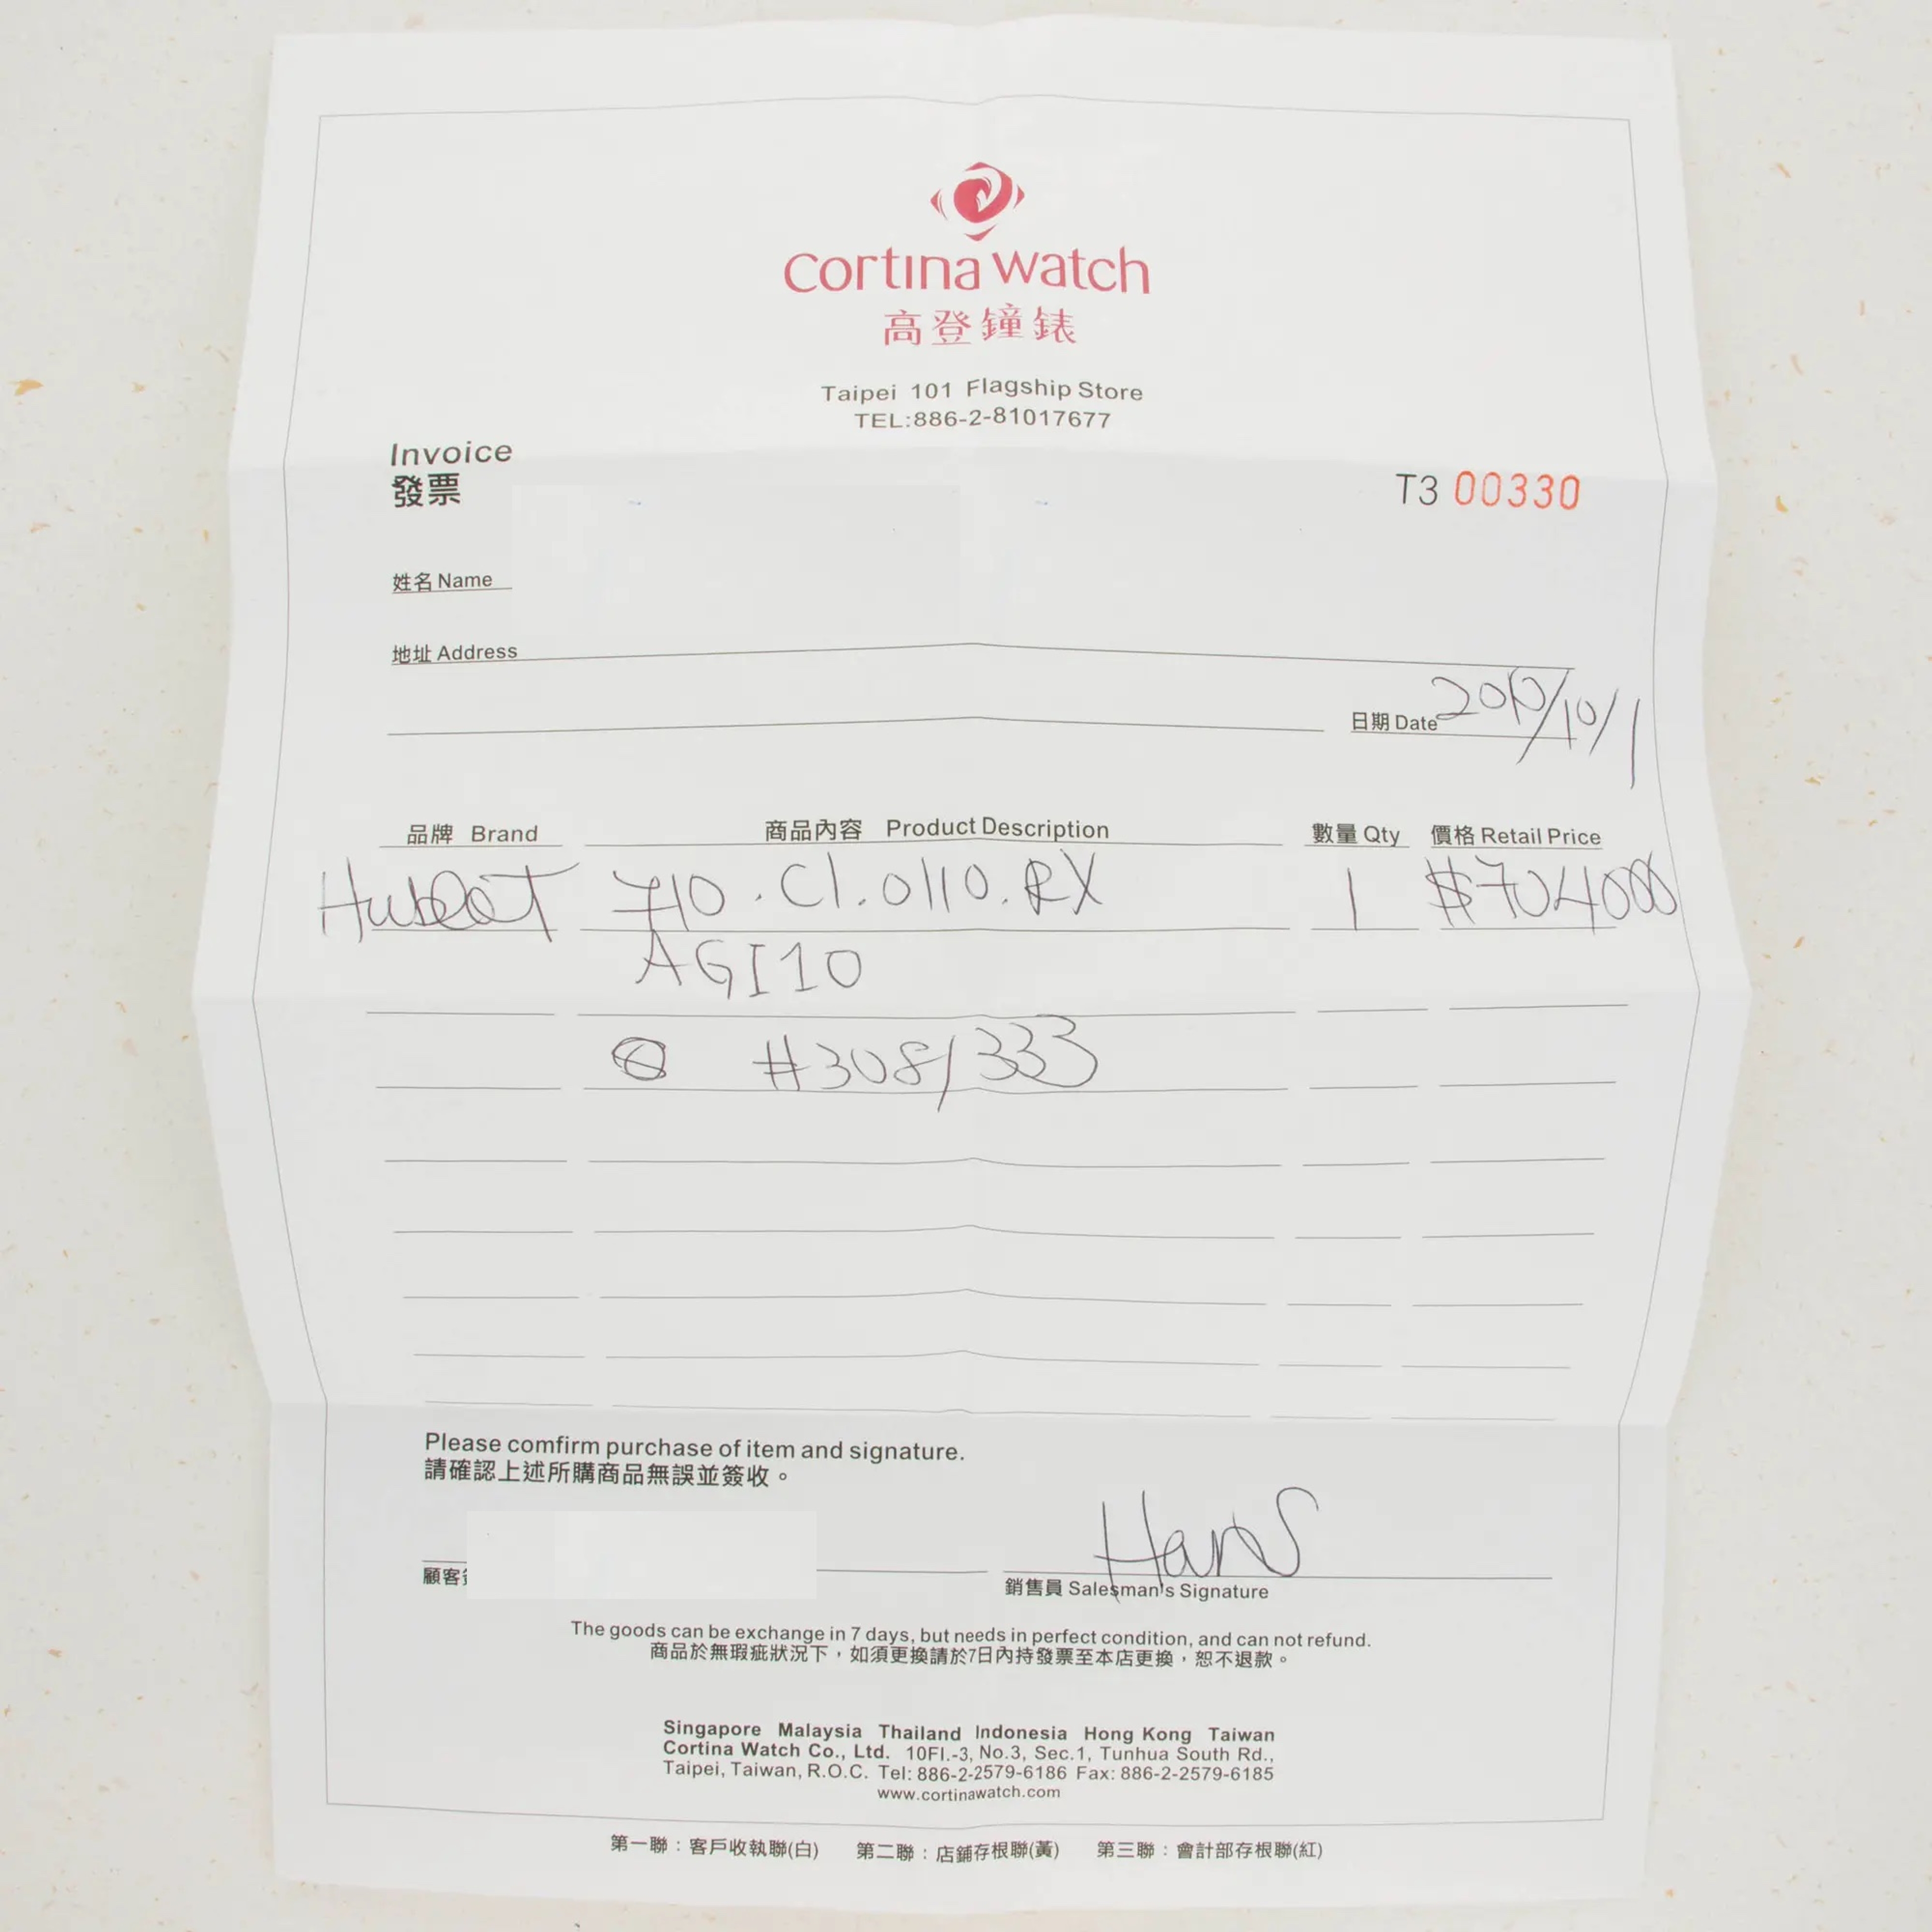 cortina watch
高登鐘錶
Taipei 101 Flagship Store
TEL:886-2-81017677
Invoice
發票
T3 00330
姓名 Name
地址 Address
日期 Date 2010/10/1
品牌 Brand 商品內容 Product Description 數量 Qty 價格 Retail Price
Hublot 710.CI.0110.RX 1 $704000
AGI10
#308/333
Please comfirm purchase of item and signature.
請確認上述所購商品無誤並簽收。
Hans
顧客
銷售員 Salesman's Signature
The goods can be exchange in 7 days, but needs in perfect condition, and can not refund.
商品於無瑕疵狀況下，如須更換請於7日內持發票至本店更換，恕不退款。
Singapore Malaysia Thailand Indonesia Hong Kong Taiwan
Cortina Watch Co., Ltd. 10Fl.-3, No.3, Sec.1, Tunhua South Rd.,
Taipei, Taiwan, R.O.C. Tel: 886-2-2579-6186 Fax: 886-2-2579-6185
www.cortinawatch.com
第一聯：客戶收執聯(白) 第二聯：店鋪存根聯(黃) 第三聯：會計部存根聯(紅)